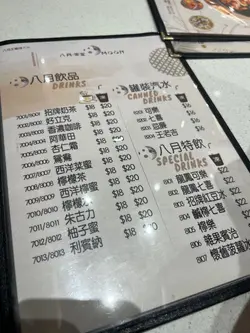 八月
MOON
八月飲品
DRINKS
7001/8001 招牌奶茶 $18 $20
7002/8002 好立克 $18 $20
7003/8003 香濃咖啡 $18 $20
7004/8004 阿華田 $18 $20
杏仁霜 $18 $20
鴛鴦 $18 $20
西洋菜蜜 $18 $20
檸檬茶 $18 $20
西洋檸蜜 $18 $20
7010/8010 檸檬水 $18 $20
7011/8011 朱古力 $18 $20
7012/8012 柚子蜜 $18 $20
7013/8013 利賓納 $18 $20
罐裝汽水
CANNED
DRINKS
可樂
七喜
忌廉
王老吉
八月特飲
SPECIAL
DRINKS
801 鳳凰可樂 $22
802 鳳凰七喜 $22
803 招牌紅豆冰
804 鹹檸七喜
805 檸樂
806 雜果賓治
807 懷舊菠蘿冰